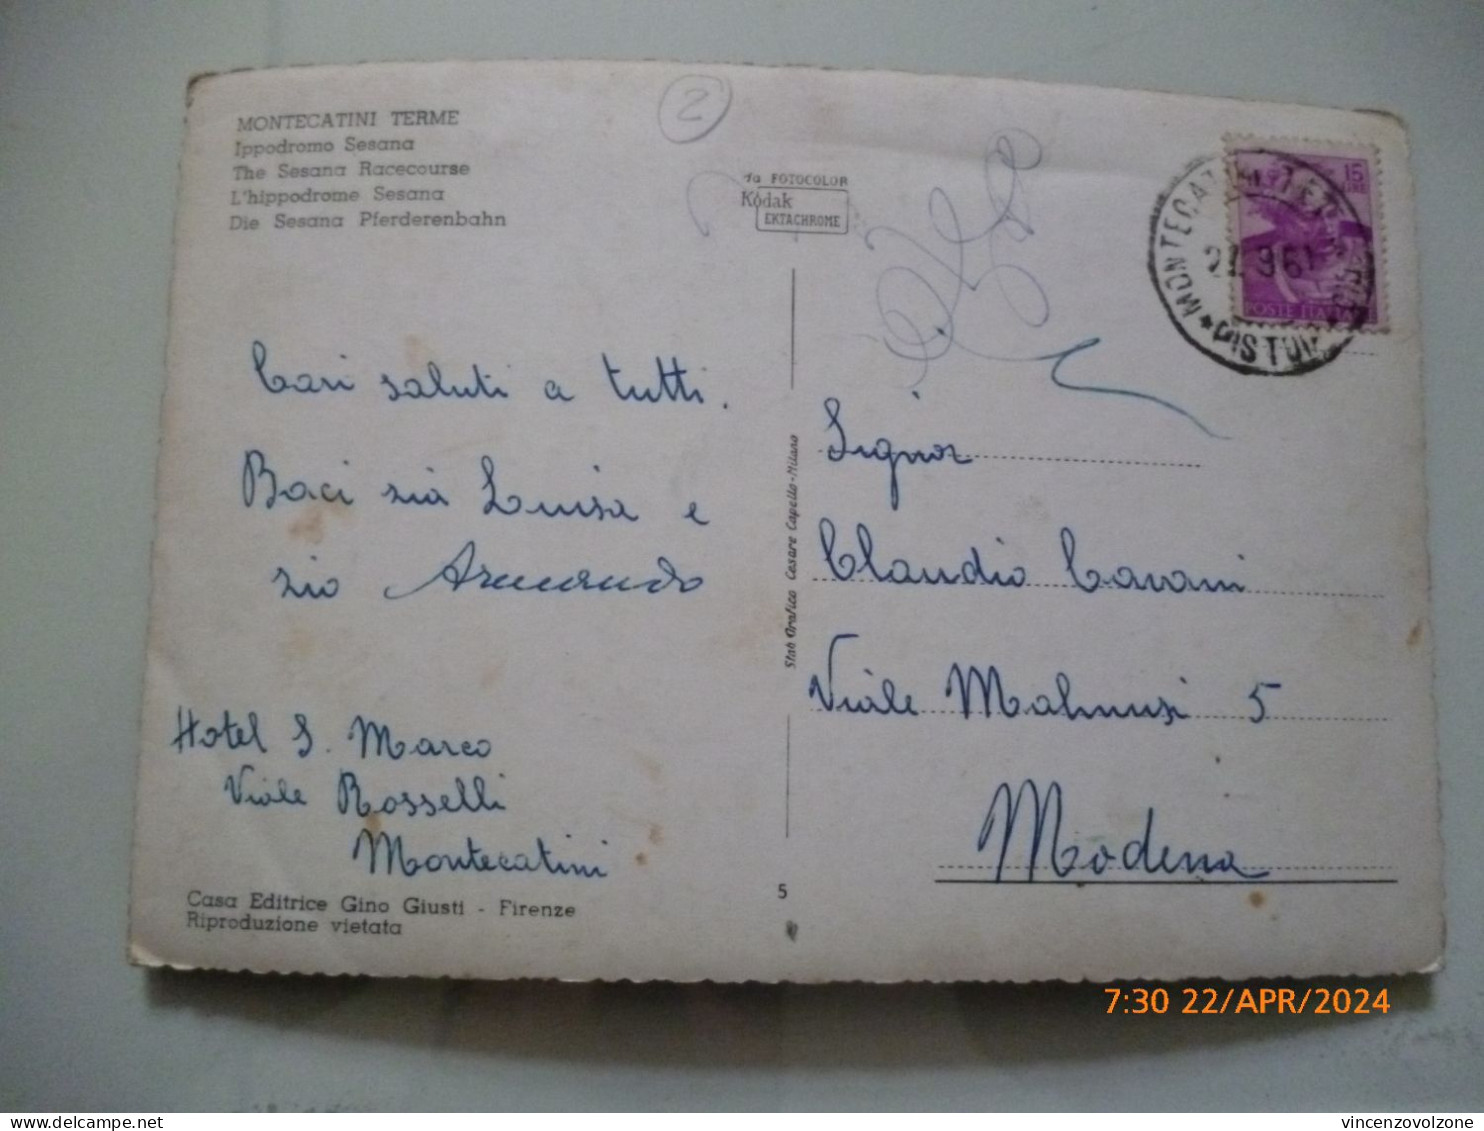 MONTECATINI TERME
Ippodromo Sesana
The Sesana Racecourse
L'hippodrome Sesana
Die Sesana Pferderenbahn
2
FOTOCOLOR
Kodak
EKTACHROME
15
LIRE
POSTE ITALIA
MONTECATINI TERME
PISTOIA
Cari saluti a tutti.
Baci zia Luisa e
zio Armando
Hotel S. Marco
Viale Rosselli
Montecatini
Casa Editrice Gino Giusti - Firenze
Riproduzione vietata
Stab Grafico Cesare Capello-Milano
5
Signor
Claudio Cavani
Viale Malmusi 5
Modena
7:30 22/APR/2024
vincenzovolzone